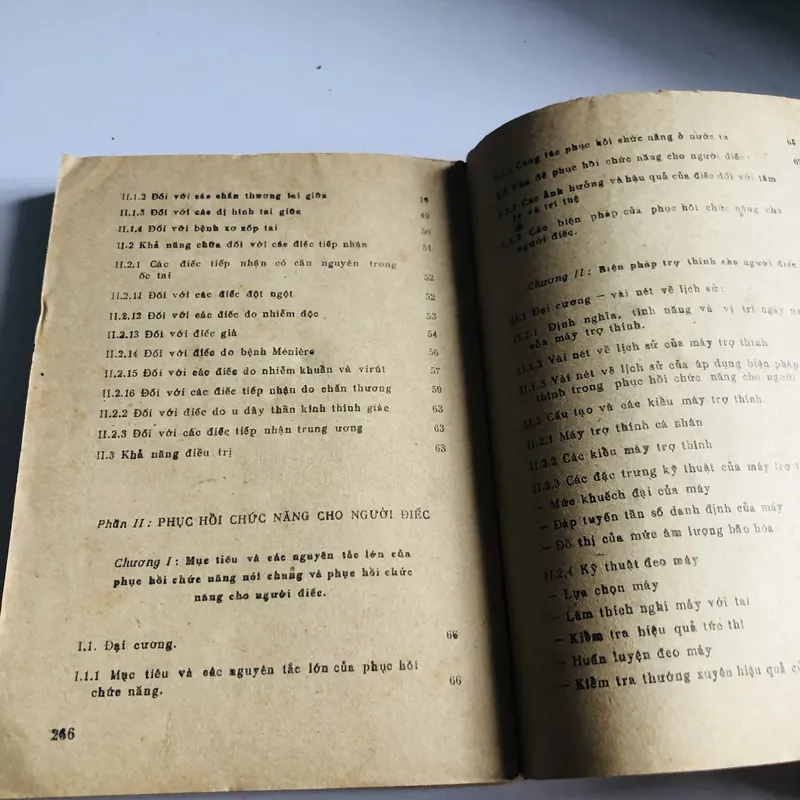 II.1.2 Đối với các chấn thương tai giữa
II.1.3 Đối với các dị hình tai giữa 49
II.1.4 Đối với bệnh xơ xốp tai 50
II.2 Khả năng chữa đối với các điếc tiếp nhận 51
II.2.1 Các điếc tiếp nhận có căn nguyên trong
ốc tai 52
II.2.11 Đối với các điếc đột ngột 52
II.2.12 Đối với các điếc do nhiễm độc 53
II.2.13 Đối với điếc già 54
II.2.14 Đối với điếc do bệnh Ménière 56
II.2.15 Đối với các điếc do nhiễm khuẩn và virút 57
II.2.16 Đối với các điếc tiếp nhận do chấn thương 59
II.2.2 Đối với điếc do u dây thần kinh thính giác 63
II.2.3 Đối với các điếc tiếp nhận trung ương 63
II.3 Khả năng điều trị 63
Phần II : PHỤC HỒI CHỨC NĂNG CHO NGƯỜI ĐIẾC
Chương I : Mục tiêu và các nguyên tắc lớn của
phục hồi chức năng nói chung và phục hồi chức
năng cho người điếc.
I.1. Đại cương. 66
I.1.1 Mục tiêu và các nguyên tắc lớn của phục hồi
chức năng. 66
266
Công tác phục hồi chức năng ở nước ta
Vấn đề phục hồi chức năng cho người điếc
Các ảnh hưởng và hậu quả của điếc đối với tâm
tư và trí tuệ
Các biện pháp của phục hồi chức năng cho
người điếc.
Chương II : Biện pháp trợ thính cho người điếc
II.1 Đại cương — vài nét về lịch sử :
II.1.1 Định nghĩa, tính năng và vị trí ngày
của máy trợ thính.
II.1.2 Vài nét về lịch sử của máy trợ thính
II.1.3 Vài nét về lịch sử của áp dụng biện pháp
thính trong phục hồi chức năng cho người
II.2 Cấu tạo và các kiểu máy trợ thính
II.2.1 Máy trợ thính cá nhân
II.2.2 Các kiểu máy trợ thính
II.2.3 Các đặc trưng kỹ thuật của máy trợ
— Mức khuếch đại của máy
— Đáp tuyến tần số danh định của máy
— Đồ thị của mức âm lượng bão hòa
II.2.4 Kỹ thuật đeo máy
— Lựa chọn máy
— Làm thích nghi máy với tai
— Kiểm tra hiệu quả tức thì
— Huấn luyện đeo máy
— Kiểm tra thường xuyên hiệu quả